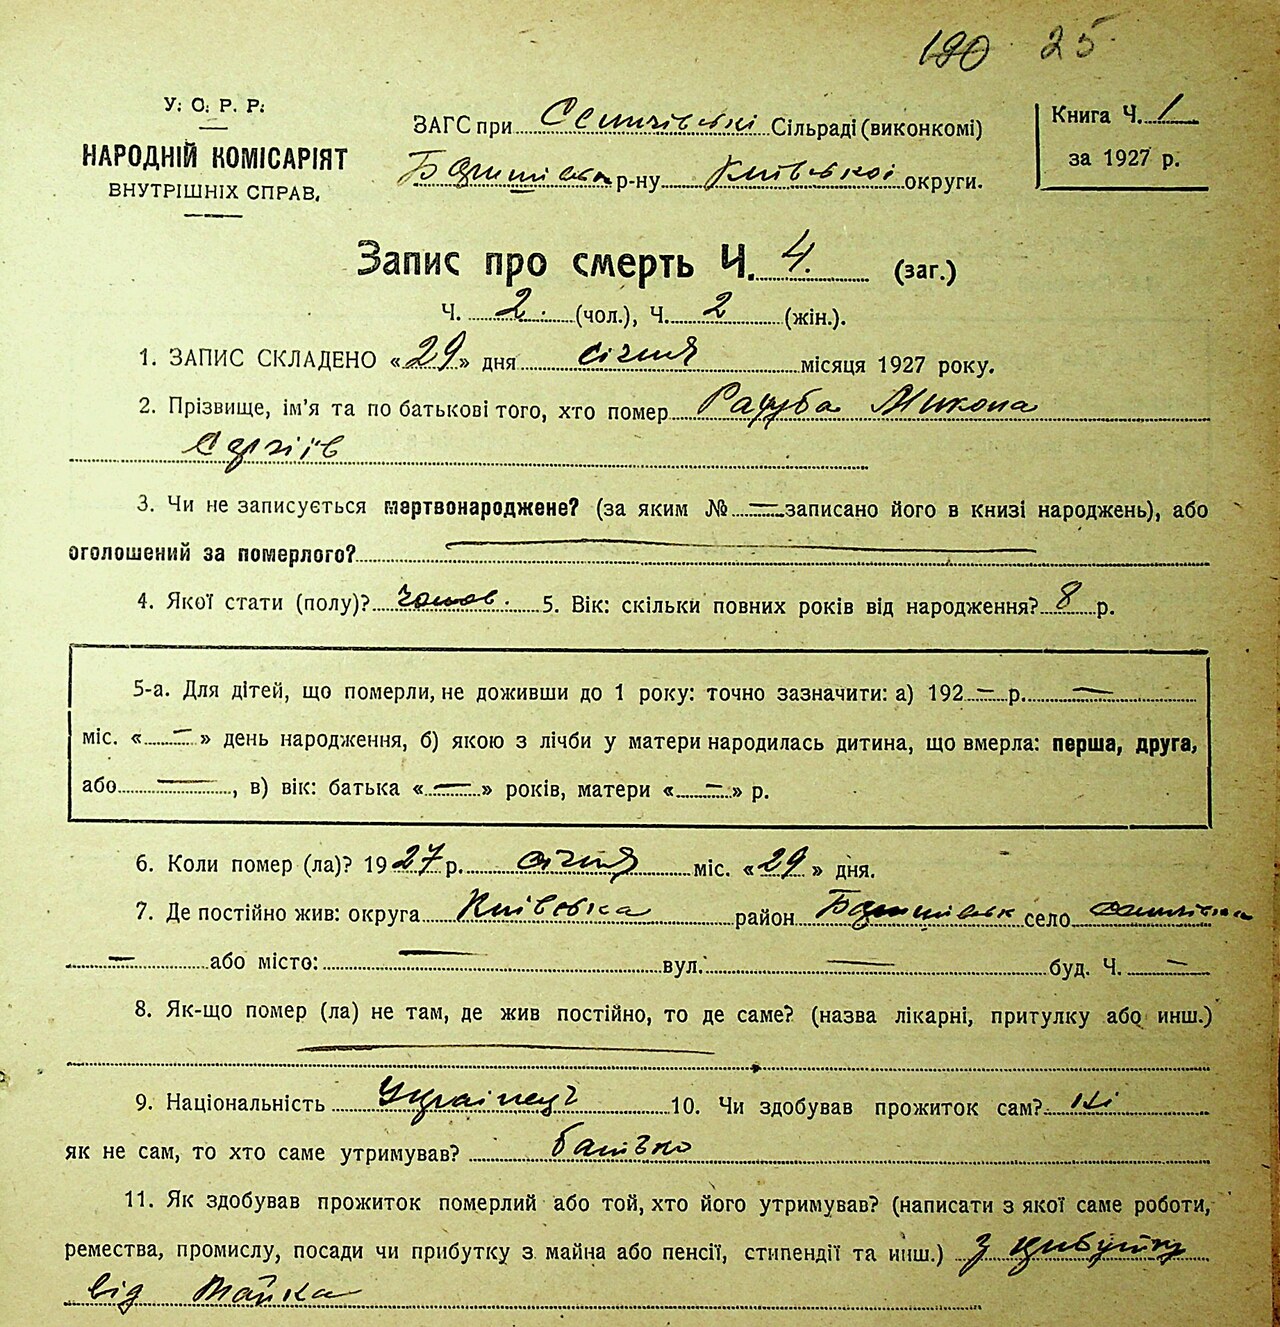 190 25
У. О. Р. Р.
НАРОДНІЙ КОМІСАРІЯТ
ВНУТРІШНІХ СПРАВ.
ЗАГС при Сільраді (виконкомі)
р-ну Київської округи.
Книга Ч. 1
за 1927 р.
Запис про смерть Ч. 4. (заг.)
Ч. 2. (чол.), Ч. 2 (жін.).
1. ЗАПИС СКЛАДЕНО «29» дня січня місяця 1927 року.
2. Прізвище, ім'я та по батькові того, хто помер Микола
Сергіїв
3. Чи не записується мертвонароджене? (за яким № — записано його в книзі народжень), або
оголошений за померлого? —
4. Якої стати (полу)? чолов. 5. Вік: скільки повних років від народження? 8 р.
5-а. Для дітей, що померли, не доживши до 1 року: точно зазначити: а) 192 — р. —
міс. « — » день народження, б) якою з лічби у матери народилась дитина, що вмерла: перша, друга,
або —, в) вік: батька « — » років, матери « — » р.
6. Коли помер (ла)? 1927 р. січня міс. «29» дня.
7. Де постійно жив: округа Київська район село
— або місто: — вул. — буд. Ч. —
8. Як-що помер (ла) не там, де жив постійно, то де саме? (назва лікарні, притулку або инш.)
—
9. Національність Українець 10. Чи здобував прожиток сам? ні
як не сам, то хто саме утримував? батько
11. Як здобував прожиток померлий або той, хто його утримував? (написати з якої саме роботи,
ремества, промислу, посади чи прибутку з майна або пенсії, стипендії та инш.) З прибутку
від майна